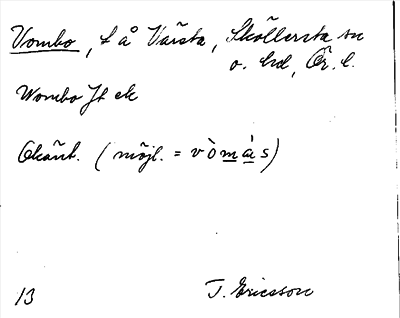 Vombo, t å Värsta, Sköllersta sn
o. hd, Ör. l.
Wombo Jt ek
Okänt. (möjl. = vòmås)
13 T. Ericsson